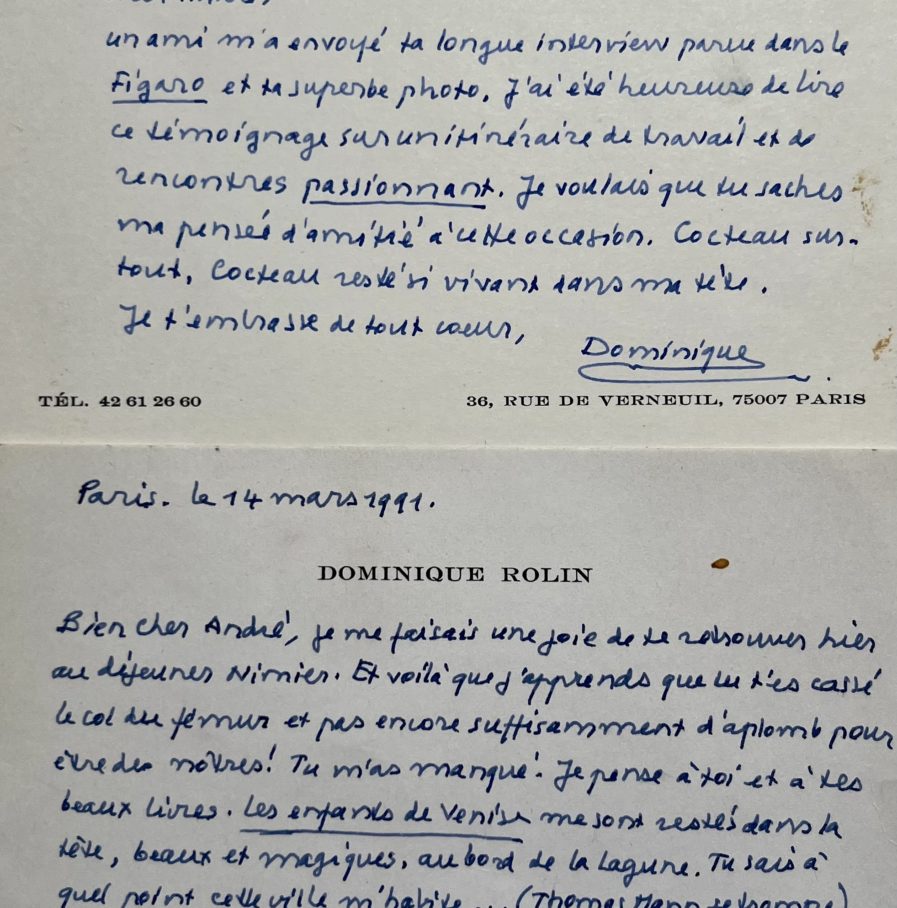 un ami m'a envoyé ta longue interview parue dans le
Figaro et ta superbe photo. J'ai été heureuse de lire
ce témoignage sur un itinéraire de travail et de
rencontres passionnant. Je voulais que tu saches
ma pensée d'amitié à cette occasion. Cocteau sur-
tout, Cocteau resté si vivant dans ma tête.
Je t'embrasse de tout coeur,
Dominique
TÉL. 42 61 26 60 36, RUE DE VERNEUIL, 75007 PARIS
Paris. le 14 mars 1991.
DOMINIQUE ROLIN
Bien cher André, je me faisais une joie de te retrouver hier
au déjeuner Nimier. Et voilà que j'apprends que tu t'es cassé
le col du fémur et pas encore suffisamment d'aplomb pour
être des nôtres! Tu m'as manqué. Je pense à toi et à tes
beaux livres. Les enfants de Venise me sont restés dans la
tête, beaux et magiques, au bord de la lagune. Tu sais à
quel point cette ville m'habite... (Thomas Mann